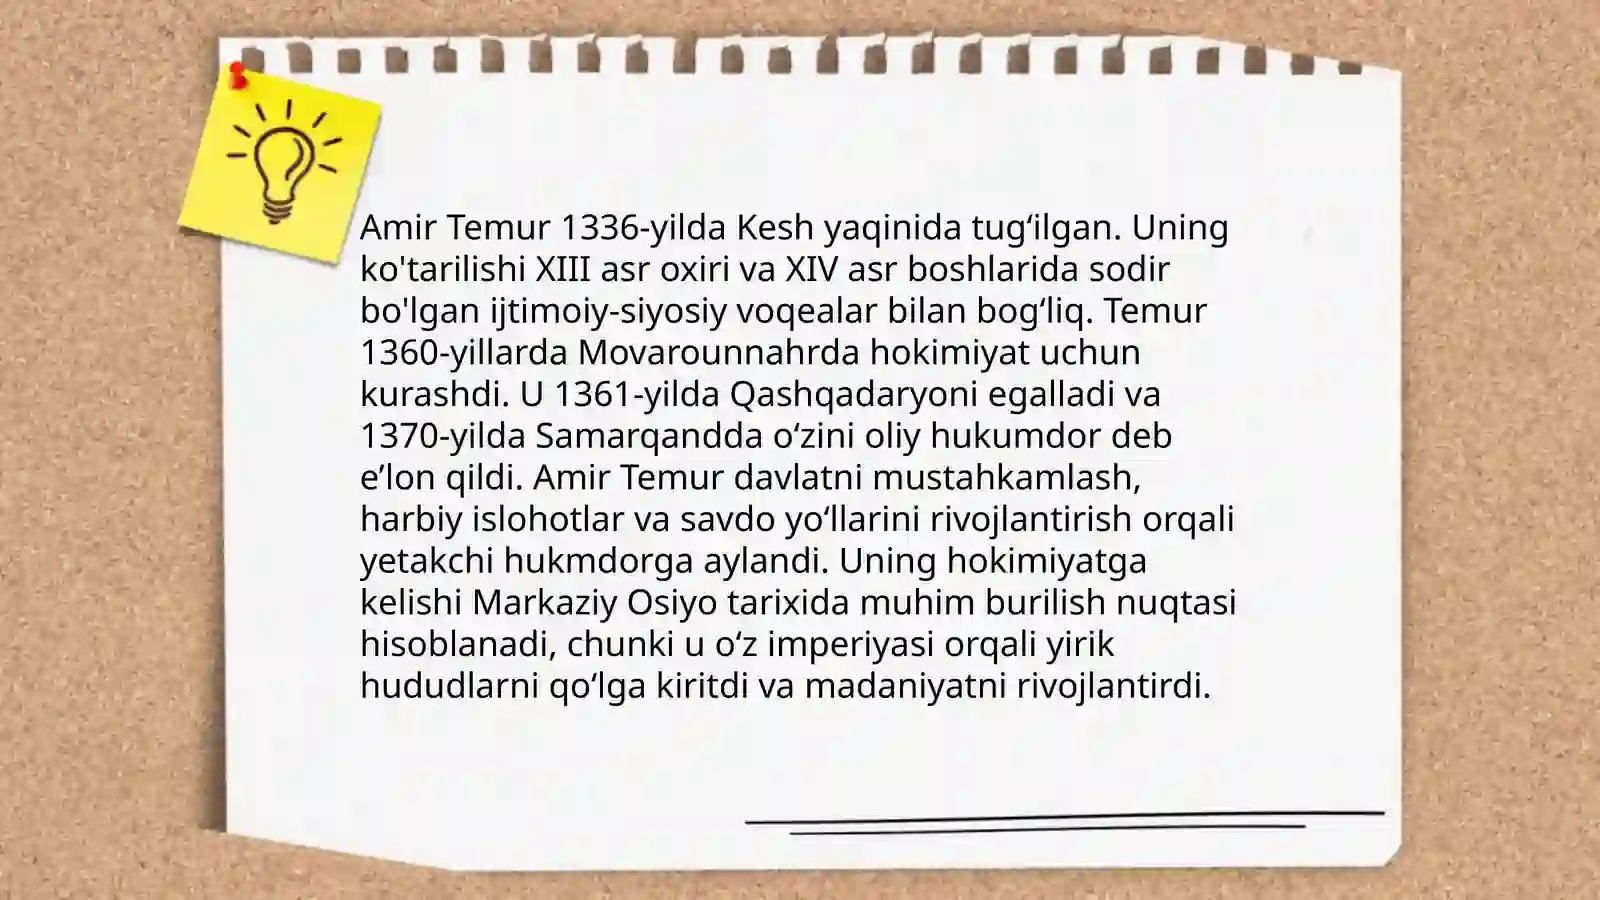 Amir Temur 1336-yilda Kesh yaqinida tug‘ilgan. Uning
ko'tarilishi XIII asr oxiri va XIV asr boshlarida sodir
bo'lgan ijtimoiy-siyosiy voqealar bilan bog‘liq. Temur
1360-yillarda Movarounnahrda hokimiyat uchun
kurashdi. U 1361-yilda Qashqadaryoni egalladi va
1370-yilda Samarqandda o‘zini oliy hukumdor deb
e’lon qildi. Amir Temur davlatni mustahkamlash,
harbiy islohotlar va savdo yo‘llarini rivojlantirish orqali
yetakchi hukmdorga aylandi. Uning hokimiyatga
kelishi Markaziy Osiyo tarixida muhim burilish nuqtasi
hisoblanadi, chunki u o‘z imperiyasi orqali yirik
hududlarni qo‘lga kiritdi va madaniyatni rivojlantirdi.